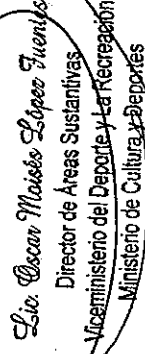 Lic. Oscar Moisés López Fuentes
Director de Áreas Sustantivas
Viceministerio del Deporte y La Recreación
Ministerio de Cultura y Deportes